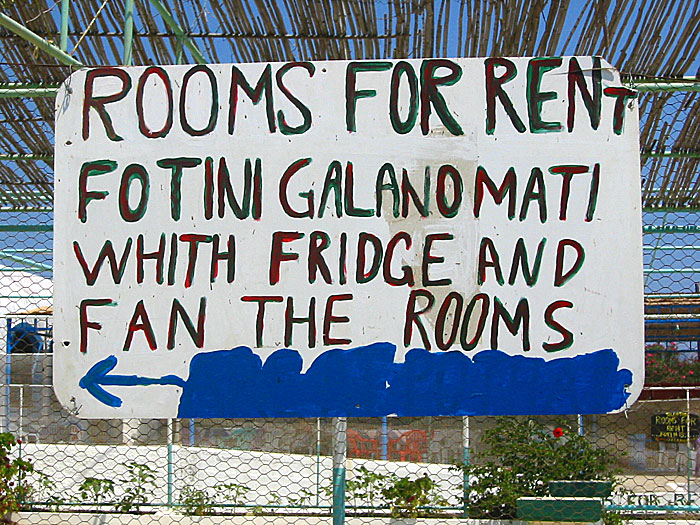 ROOMS FOR RENT
FOTINI GALANOMATI
WHITH FRIDGE AND
FAN THE ROOMS
ROOMS FOR
RENT